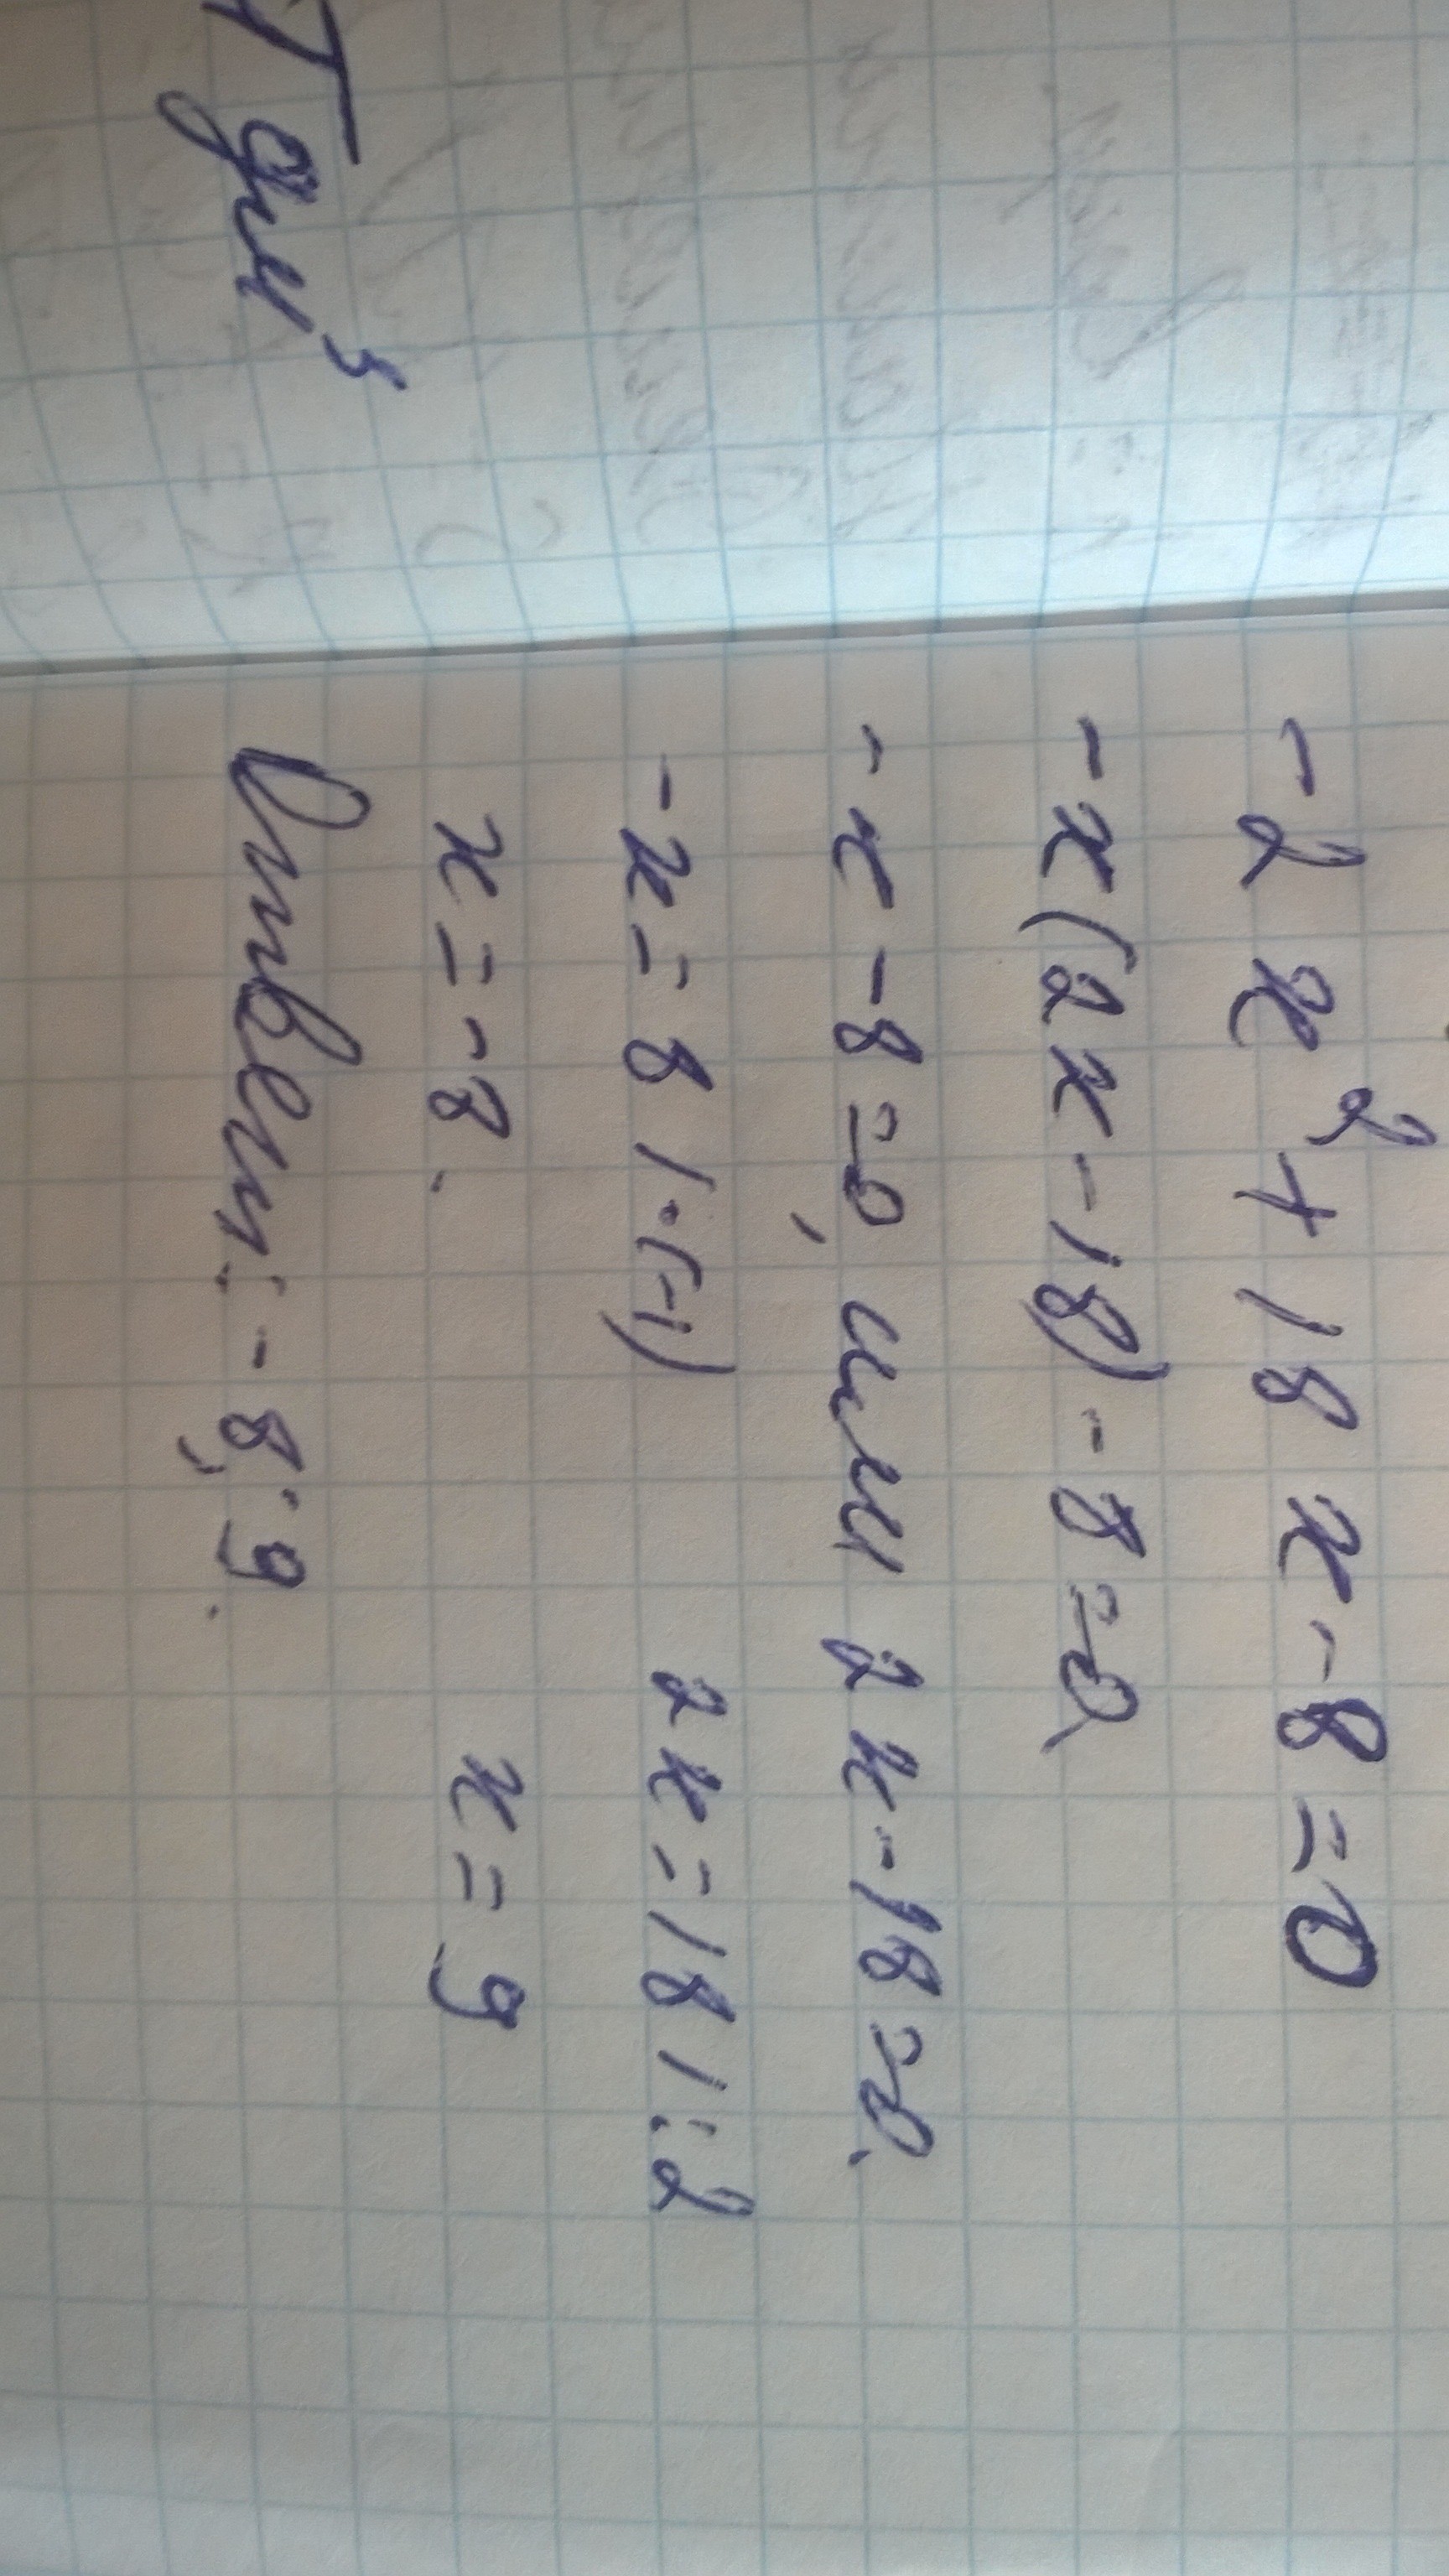 -2x² + 18x - 8 = 0
-x(2x - 18) - 8 = 0,
-x - 8 = 0, или 2x - 18 = 0.
-x = 8 | · (-1) 2x = 18 | : 2
x = -8. x = 9
Ответ: -8; 9.